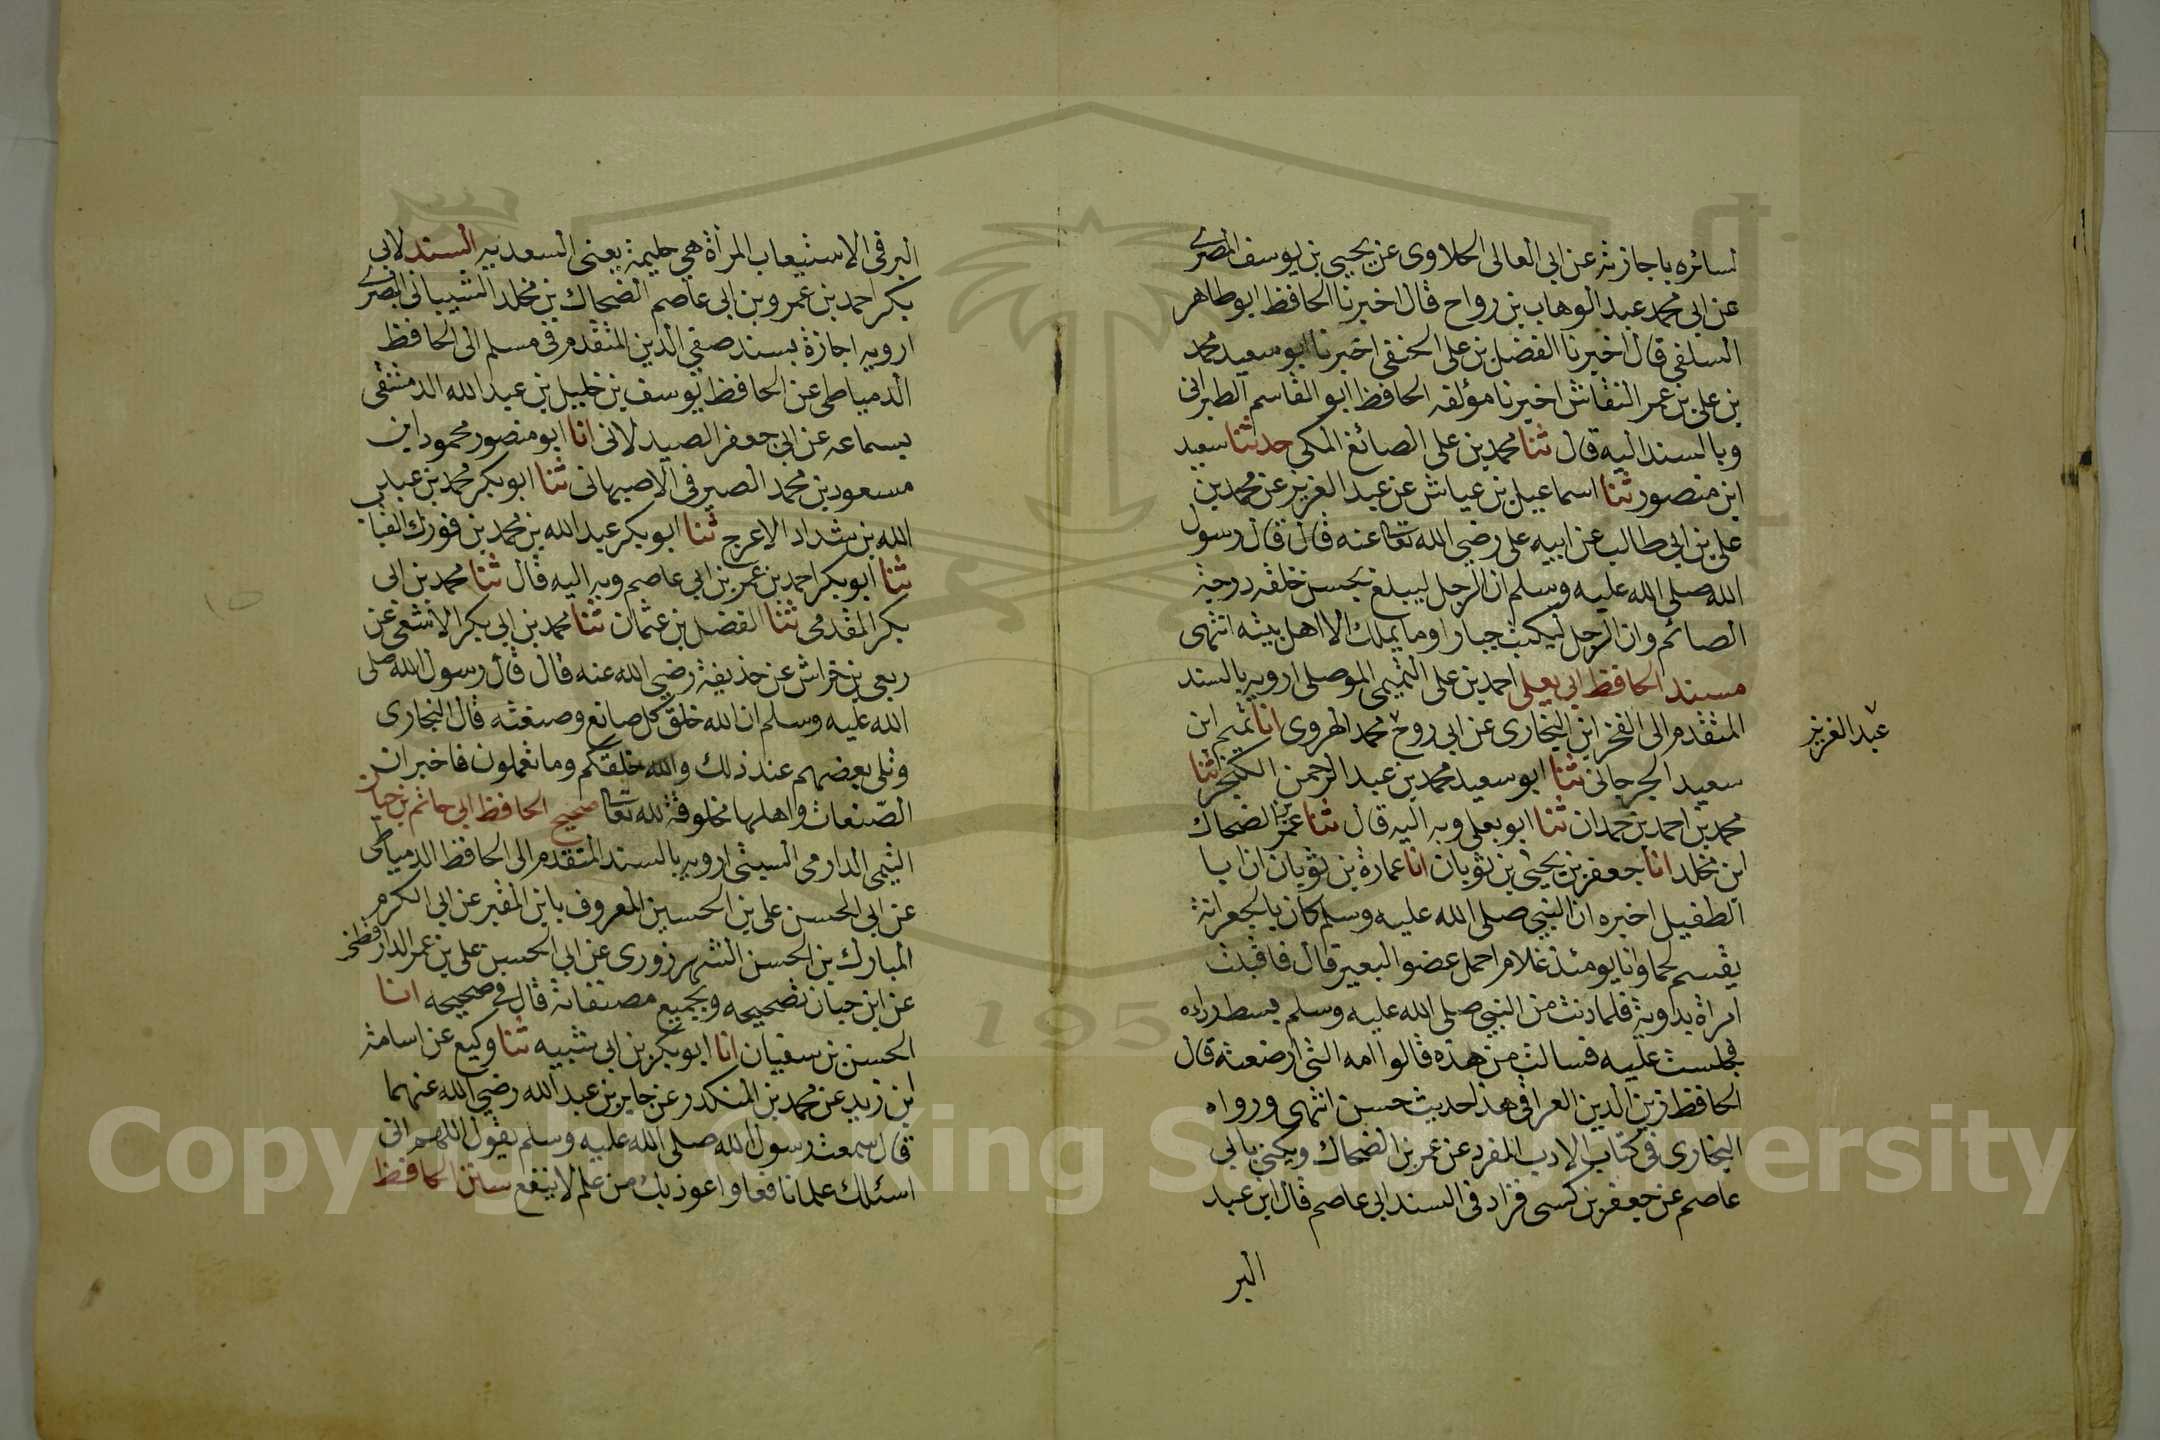 لسائره باجازته عن ابي المعالي الحلاوي عن يحيى بن يوسف المصري
عن ابي محمد عبد الوهاب بن رواح قال اخبرنا الحافظ ابو طاهر
السلفي قال اخبرنا الفضل بن علي الحنفي اخبرنا ابو سعيد محمد
بن علي بن عمر النقاش اخبرنا مؤلفه الحافظ ابو القاسم الطبراني
وبالسند اليه قال ثنا محمد بن علي الصائغ المكي حدثنا سعيد
ابن منصور ثنا اسماعيل بن عياش عن عبد العزيز عن محمد بن
علي بن ابي طالب عن ابيه علي رضي الله تعا عنه قال قال رسول
الله صلى الله عليه وسلم ان الرجل ليبلغ بحسن خلقه درجة
الصائم وان الرجل ليكتب جبارا وما يملك الا اهل بيته انتهى
مسند الحافظ ابي يعلى احمد بن علي التميمي الموصلي ارويه بالسند
المتقدم الى الفخر ابن البخاري عن ابي روح محمد الهروي انا تميم ابن
عبد العزيز
سعيد الجرجاني ثنا ابو سعيد محمد بن عبد الرحمن الكنجر ثنا
محمد بن احمد بن حمدان ثنا ابو يعلى وبه اليه قال ثنا عمر بن الضحاك
ابن مخلد انا جعفر بن يحيى بن ثوبان انا عمارة بن ثوبان ان ابا
الطفيل اخبره ان النبي صلى الله عليه وسلم كان بالجعرانة
يقسم لحما وانا يومئذ غلام احمل عضو البعير قال فاقبلت
امراة بدوية فلما دنت من النبي صلى الله عليه وسلم بسط رداءه
فجلست عليه فسالت من هذه قالوا امه التي ارضعته قال
الحافظ زين الدين العراقي هذا حديث حسن انتهى ورواه
البخاري في كتاب الادب المفرد عن عمر بن الضحاك ويكنى بابي
عاصم عن جعفر بن كسى فزاد في السند ابي عاصم قال ابن عبد
البر
البر في الاستيعاب المرأة هي حليمة يعنى السعدية السند لابي
بكر احمد بن عمرو بن ابي عاصم الضحاك بن مخلد الشيباني البصري
ارويه اجازة بسند صفي الدين المتقدم في مسلم الى الحافظ
الدمياطي عن الحافظ يوسف بن خليل بن عبد الله الدمشقي
بسماعه عن ابي جعفر الصيدلاني انا ابو منصور محمود ابن
مسعود بن محمد الصيرفي الاصبهاني ثنا ابو بكر محمد بن عبد
الله بن شداد الاعرج ثنا ابو بكر عبد الله بن محمد بن فورك القباب
ثنا ابو بكر احمد بن عمر بن ابي عاصم وبه اليه قال ثنا محمد بن ابي
بكر المقدمي ثنا الفضل بن عثمان ثنا محمد بن ابي بكر الاشفعي عن
ربعي بن خراش عن حذيفة رضي الله عنه قال قال رسول الله صلى
الله عليه وسلم ان الله خلق كل صانع وصنعته قال البخاري
وتلى بعضهم عند ذلك والله خلقكم وما تعملون فاخبر ان
الصنعات واهلها مخلوقة لله تعا صحيح الحافظ ابي حاتم بن حبان
التيمي الدارمي البستي ارويه بالسند المتقدم الى الحافظ الدمياطي
عن ابي الحسن علي بن الحسين المعروف بابن المقير عن ابي الكرم
المبارك بن الحسن الشهرزوري عن ابي الحسين علي بن عمر الدارقطني
عن ابن حبان تصحيحه وبجميع مصنفاته قال في صحيحه انا
الحسن بن سفيان انا ابو بكر بن ابي شيبه ثنا وكيع عن اسامة
ابن زيد عن محمد بن المنكدر عن جابر بن عبد الله رضي الله عنهما
قال سمعت رسول الله صلى الله عليه وسلم يقول اللهم اني
اسئلك علما نافعا واعوذ بك من علم لا ينفع سنن الحافظ
Copyright © King Saud University
195